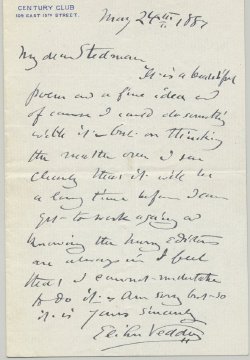 CENTURY CLUB
109 EAST 15TH STREET.
May 24th 1887
My dear Stedman
It is a beautiful
poem and a fine idea and
of course I could do something
with it — but on thinking
the matter over I see
clearly that it will be
a long time before I can
get to work again and
knowing the hurry Editors
are always in I feel
that I cannot undertake
to do it — Am sorry but so
it is yours sincerely
Elihu Vedder